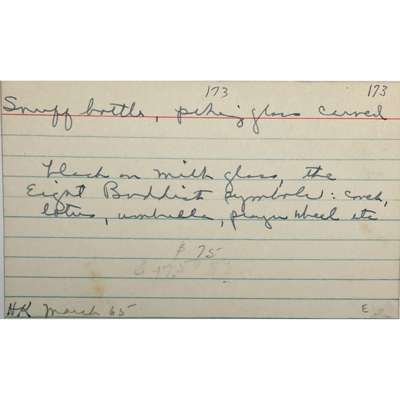 173 173
Snuff bottle, peking glass carved
black on milk glass, the
Eight Buddist symbols: conch,
lotus, umbrella, prayer wheel etc
$ 75
$ 175
HK March 65 E